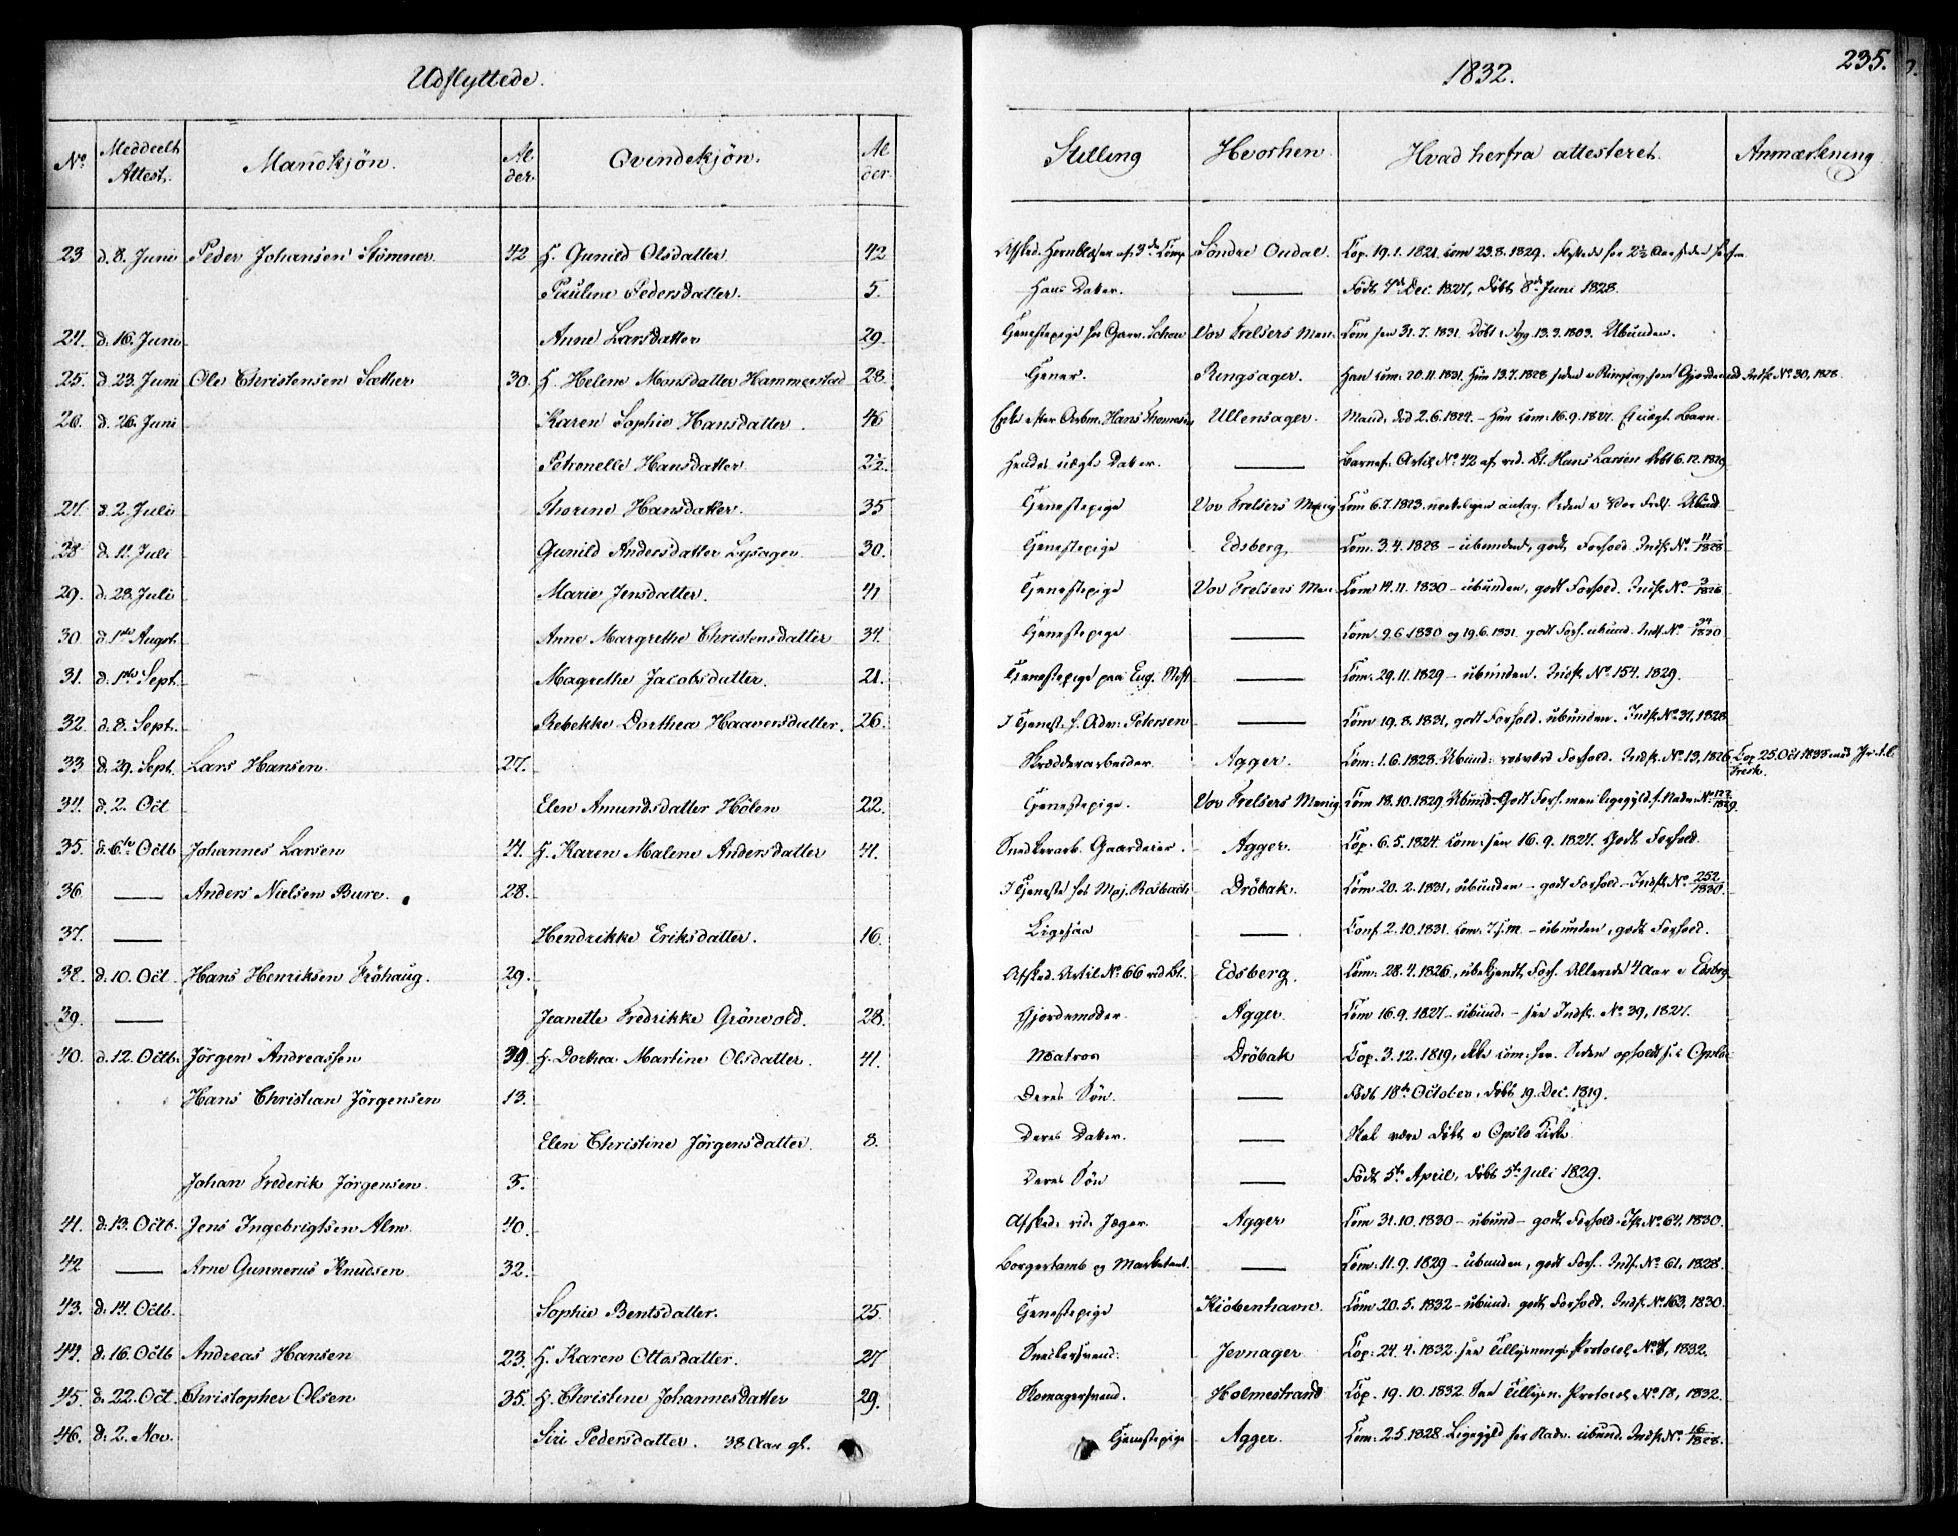 Udflyttede.
1832.
235.
No. Meddeelt Attest. Mandkjön. Alder. Qvindekjön. Alder. Stilling Hvorhen. Hvad herfra attesteret. Anmærkning
23 d. 8. Juni Peder Johansen Stömner 42 H. Gunild Olsdatter 42 Afsked. Hornblæser af 3de Comp. Söndre Oudal. Cop. 19.1.1821. Com 23.8.1829.
Pauline Pedersdatter. 5. Hans Datter. — Födt 7de Dec. 1827, Döbt 8de Juni 1828.
24. d. 16. Juni Anne Larsdatter 29. Tjenestepige hos Garv. Schou Vor Frelsers Men. Com her 31.7.1831. Döbt 13.3.1803. Ubunden.
25. d. 23. Juni Ole Christensen Sæther 30. H. Helene Monsdatter Hammerstad 28. Ringsager. Han Com. 20.11.1831. Hun 13.7.1828 Indf. No. 30, 1828.
26. d. 26. Juni Karen Sophie Hansdatter. 46 Enke efter Arbm. Hans Thomesen Ullensager. Mand. död 2.6.1824. – Hun Com. 16.9.1827. Et uægt. Barn.
Petronelle Hansdatter 2½. Hendes uægte Datter. — Barnef. Artil. No. 42 Hans Larsen döbt 6.12.1829
27. d. 2. Juli Thorine Hansdatter. 35 Tjenestepige Vor Frelsers Menig Com 6.7.1823. Ubund.
28 d. 11. Juli Gunild Andersdatter Lysager 30. Tjenestepige Edsberg. Com. 3.4.1828 – ubunden, godt Forhold. Indf. No. 11/1828
29. d. 28. Juli Marie Jensdatter. 41 Tjenestepige Vor Frelsers Men. Com 14.11.1830 – ubunden, godt Forhold. Indf. No.
30. d. 1ste Augst. Anne Margrethe Christensdatter 34. Tjenestepige — Com. 9.6.1830 og 19.6.1831. godt Forh. ubund. Indf. No.
31. d. 1ste Sept. Magrethe Jacobsdatter. 21. Tjenestepige paa Eug. Stift — Com. 29.11.1829 – ubunden. Indf. No. 154. 1829.
32. d. 8. Sept. Rebekke Dorthea Haaversdatter. 26. I Tjenest. h. Adv. Petersen — Com 19.8.1831, godt Forhold. ubunden. Indf. No. 31, 1828
33 d. 29. Sept. Lars Hansen. 27. Skrædderarbeider Agger. Com. 1.6.1828. Ubund. Forhold. Indf. No. 13, 1826 Cop. 25 Oct 1833 med
34. d. 2. Oct Elen Amundsdatter Hölen 22. Tjenestepige. Vor Frelsers Menig Com 18.10.1829. Ubund. Godt Forh. men ligegyld. f. Nadv. No. 127/1829.
35. d. 6te Octb. Johannes Larsen 41. H. Karen Malene Andersdatter 41. Snedkerarb. Gaardeier. Agger. Cop. 6.5.1824. Com. her 16.9.1827. Godt Forhold.
36 — Anders Nielsen Bure. 28. I Tjeneste hos Maj. Rosbach Dröbak. Com 20.2.1831, ubunden – godt Forhold – Indf. No. 252/1830.
37. — Hendrikke Eriksdatter. 16. Ligesaa — Conf. 2.10.1831. Com. – ubunden, godt Forhold.
38. d. 10. Oct. Hans Henriksen Fröshaug. 29. Afsked. Artil. No. 66 Edsberg. Com. 28.4.1826, ubekjendt Forh. Allerede 4 Aar i Edsberg
39. — Jeanette Fredrikke Grönvold. 28. Gjordemoder Agger. Com 16.9.1827 – ubund. – see Indf. No. 39, 1827.
40. d. 12. Octb. Jörgen Andreassen 39 H. Dorthea Martine Olsdatter. 41. Matros Dröbak Cop. 3.12.1819, ikke com. her. Siden opholdt s. i Opslo
Hans Christian Jörgensen 13. Deres Sön. — Födt 18de October, döbt 19. Dec. 1819.
Elen Christine Jörgensdatter. 8. Deres Datter. — Skal være döbt i Opslo Kirke
Johan Frederik Jörgensen. 3. Deres Sön — Födt 5te April, döbt 5te Juli 1829.
41. d. 13. Octb. Jens Ingebrigtsen Alm. 40. Afsked. rid. Jæger. Agger Com 31.10.1830 – ubund – godt Forhold. No. 64, 1830.
42 — Arne Gunnerus Knudsen. 32. Corgertamb. og Marketent. — Com. 11.9.1829 – ubunden, godt Forh. Indf. No. 61, 1828.
43. d. 14. Octb. Sophie Bentsdatter. 25. Tjenestepige Kiöbenhavn. Com 20.5.1832 – ubund. godt Forhold. Indf. No. 163, 1830.
44. d. 16. Octb Andreas Hansen 23. H. Karen Ottosdatter. 27 Snedkersvend. Jevnager Cop. 24.4.1832 see Tillysnings Protocol No. 1832.
45. d. 22. Oct. Christopher Olsen 35. H. Christine Johannesdatter 29. Skomagersvend. Holmestrand Cop. 19.10.1832. See Tillysn. Protocol No. 18, 1832.
46. d. 2. Nov. Siri Pedersdatter. 38 Aar gl. Tjenestepige Agger. Com. 25.1828 Ligegyld for Nadv. ubund. Indf. No. 16/1828.